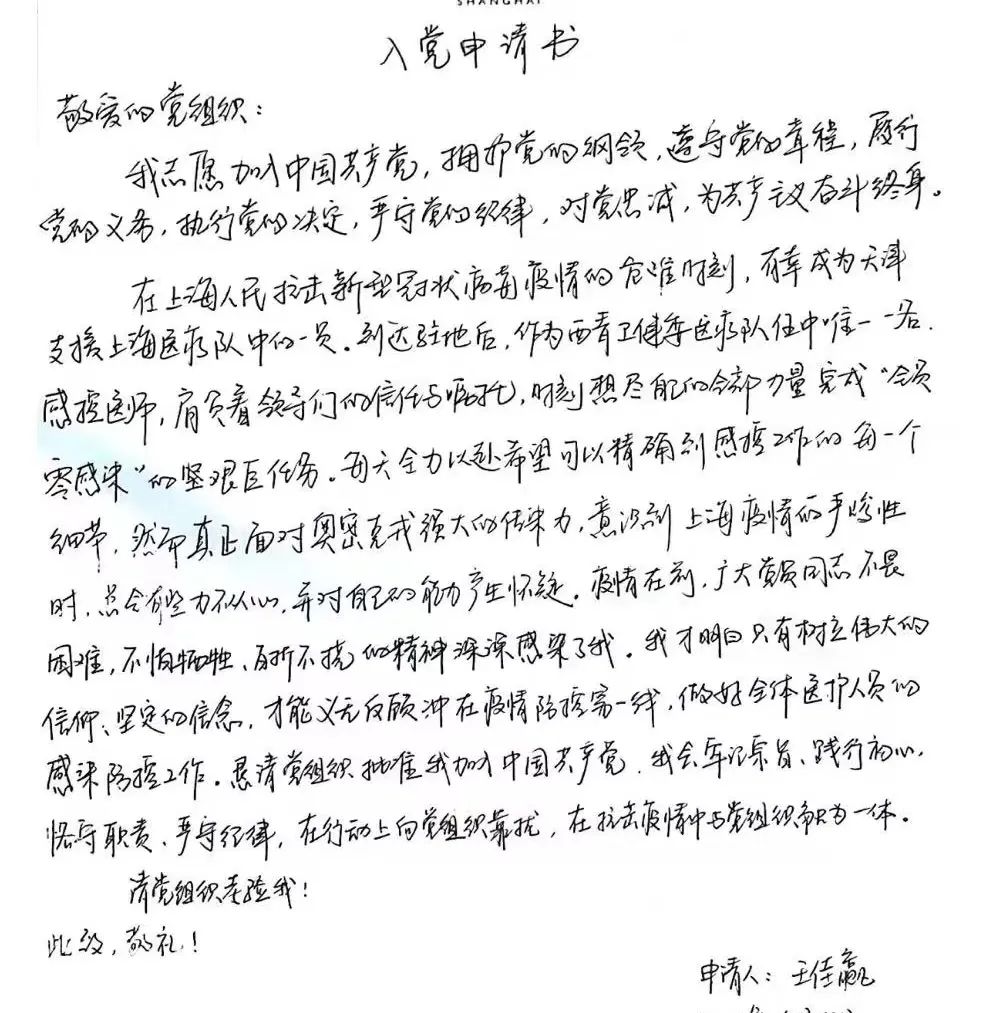 SHANGHAI
入党申请书
敬爱的党组织：
我志愿加入中国共产党，拥护党的纲领，遵守党的章程，履行
党的义务，执行党的决定，严守党的纪律，对党忠诚，为共产主义奋斗终身。
在上海人民抗击新型冠状病毒疫情的危难时刻，有幸成为天津
支援上海医疗队中的一员。到达驻地后，作为西青卫健委医疗队伍中唯一一名
感控医师，肩负着领导们的信任与嘱托，时刻想尽自己的全部力量完成“全员
零感染”的坚艰巨任务。每天全力以赴希望可以精确到感控工作的每一个
细节，然而真正面对奥密克戎强大的传染力，意识到上海疫情的严峻性
时，总会有些力不从心，并对自己的能力产生怀疑。疫情在前，广大党员同志不畏
困难，不怕牺牲、百折不挠的精神深深感染了我。我才明白只有树立伟大的
信仰、坚定的信念，才能义无反顾冲在疫情防控第一线，做好全体医护人员的
感染防控工作。恳请党组织批准我加入中国共产党，我会牢记宗旨、践行初心，
恪守职责、严守纪律，在行动上向党组织靠拢，在抗击疫情中与党组织融为一体。
请党组织考验我！
此致，敬礼！
申请人：王佳赢